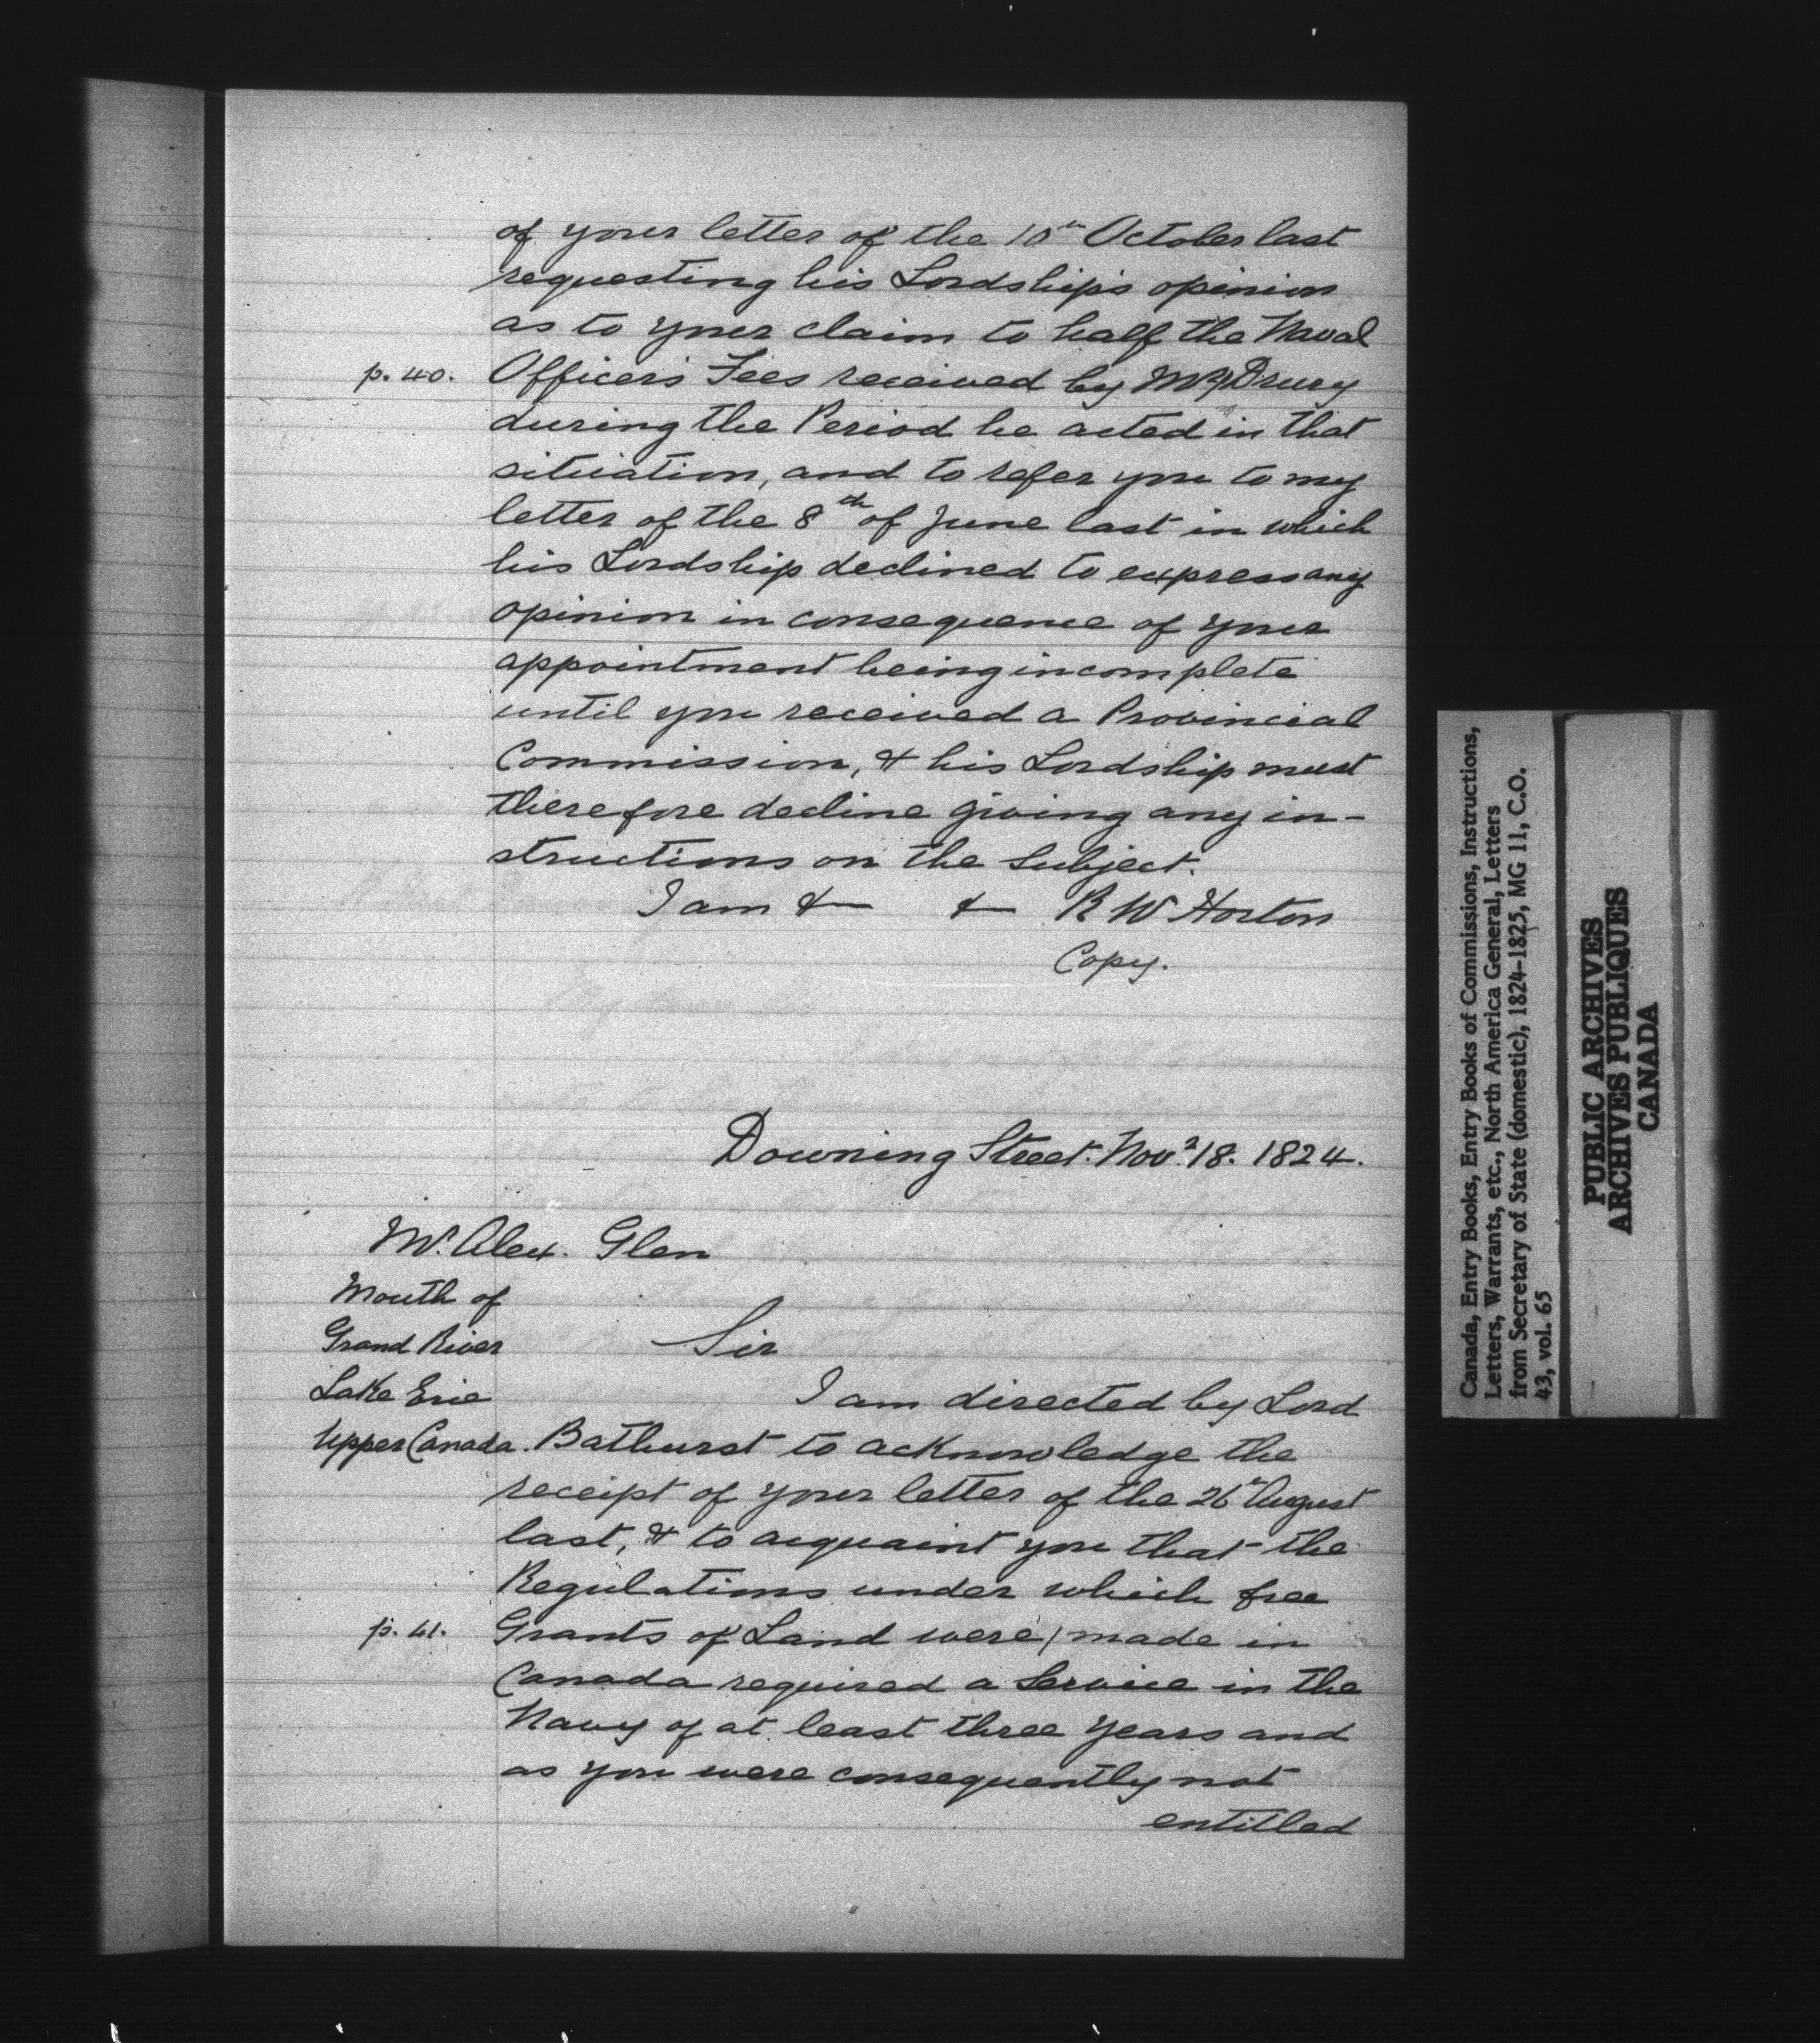 of your letter of the 10th October last
requesting his Lordship's opinion
as to your claim to half the Naval
p. 40. Officer's Fees received by Mr/Drury
during the Period he acted in that
situation, and to refer you to my
letter of the 8th of June last in which
his Lordship declined to express any
opinion in consequence of your
appointment being incomplete
until you received a Provincial
Commission, & his Lordship must
therefore decline giving any in-
structions on the Subject.
I am & & R W Horton
Copy.
Downing Street. Novr 18. 1824.
Mr. Alex. Glen
Mouth of
Grand River
Sir
Lake Erie
I am directed by Lord
Upper Canada. Bathurst to acknowledge the
receipt of your letter of the 26th August
last, & to acquaint you that the
Regulations under which free
p. 41. Grants of Land were/made in
Canada required a Service in the
Navy of at least three years and
as you were consequently not
entitled
Canada, Entry Books, Entry Books of Commissions, Instructions,
Letters, Warrants, etc., North America General, Letters
from Secretary of State (domestic), 1824-1825, MG 11, C.O.
43, vol. 65
PUBLIC ARCHIVES
ARCHIVES PUBLIQUES
CANADA